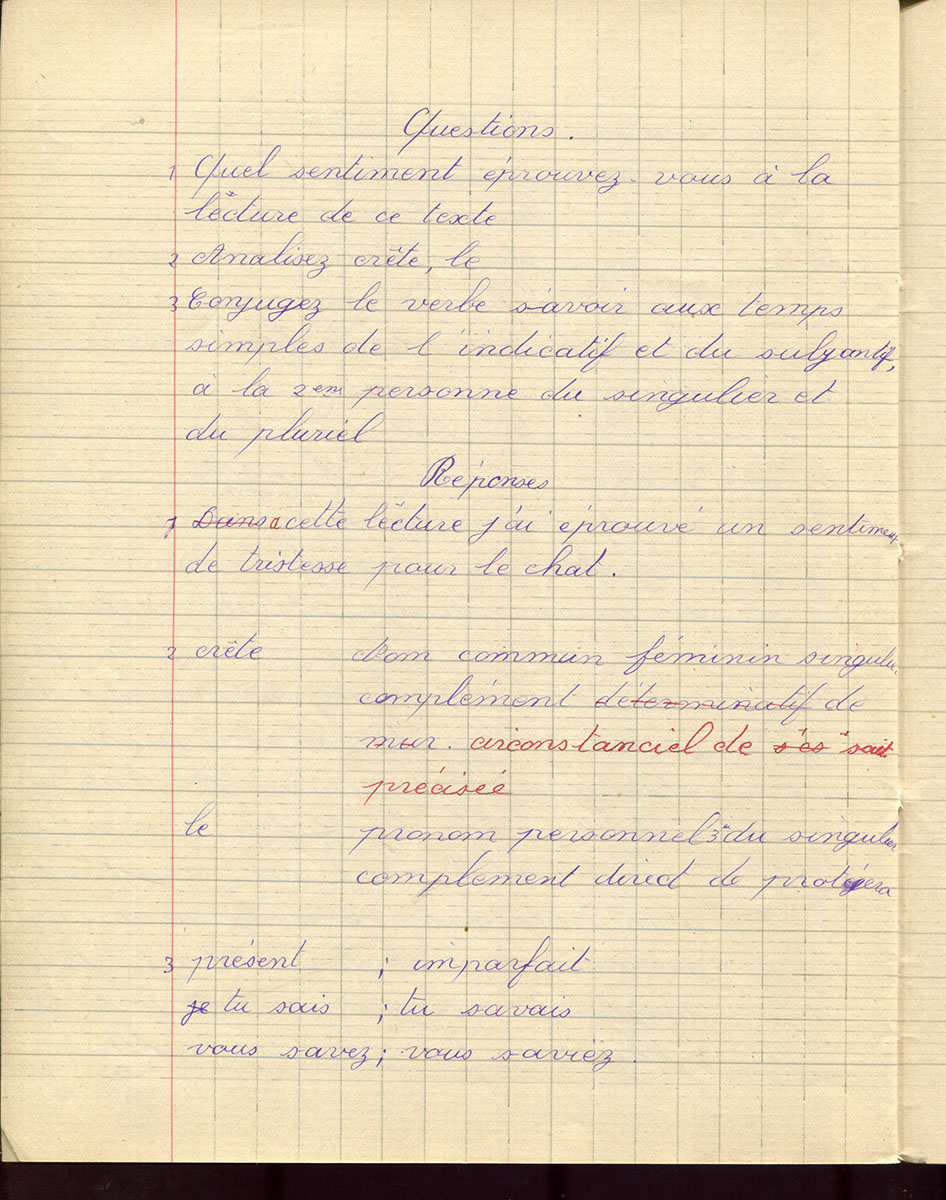 Questions.
1 Quel sentiment éprouvez-vous à la
lecture de ce texte
2 Analisez crête, le
3 Conjugez le verbe savoir aux temps
simples de l'indicatif et du subjontif,
à la 2em personne du singulier et
du pluriel
Réponses
1 Dans a cette lecture j'ai éprouvé un sentiment
de tristesse pour le chat.
2 crête Nom commun féminin singulier
complément déterminatif de
mur. circonstanciel de
précisée
le pronom personnel 3e du singulier
complement direct de protégera
3 présent ; imparfait
je tu sais ; tu savais
vous savez ; vous saviez.